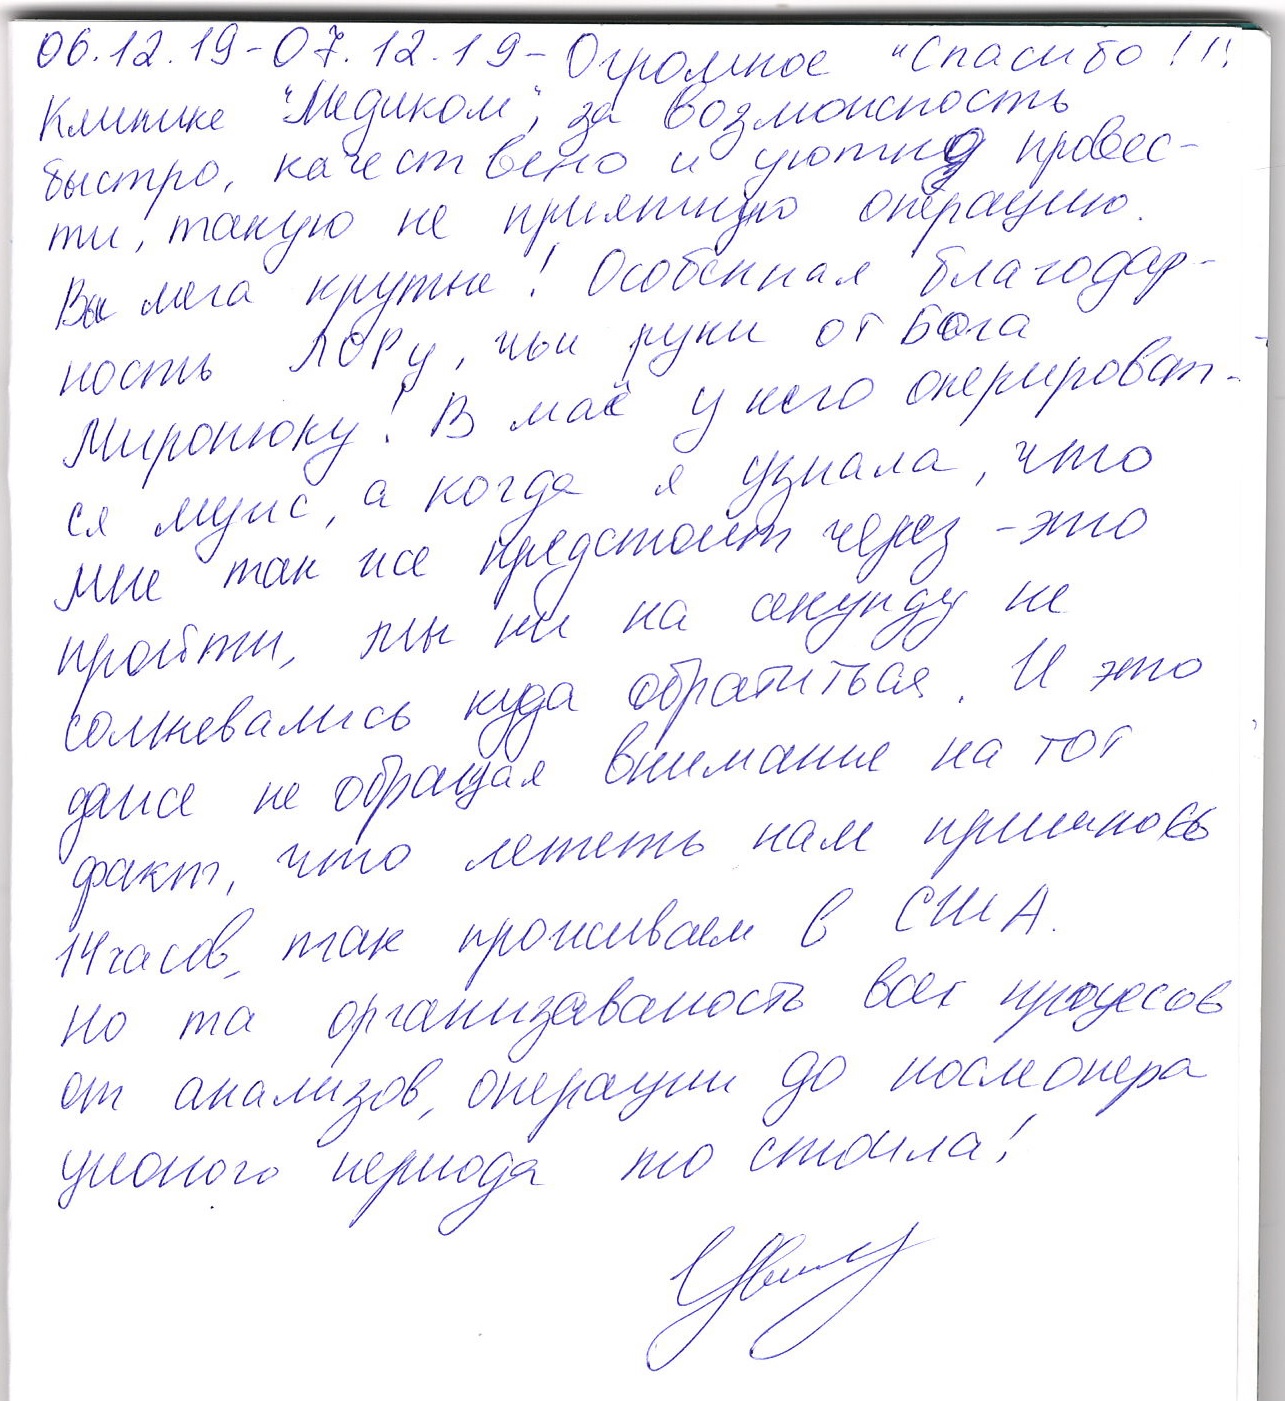 06.12.19-07.12.19- Огромное "Спасибо!!!
Клинике "Медиком", за возможность
быстро, качествено и уютно провес-
ти, такую не приятную операцию.
Вы мега крутые! Особенная благодар-
ность ЛОРу, чьи руки от Бога
Миронюку! В мае у него оперироват-
ся муж, а когда я узнала, что
мне так же предстоит через -это
пройти, мы ни на секунду не
сомневались куда обратиться. И это
даже не обращая внимание на тот
факт, что лететь нам пришлось
14 часов, так проживаем в США.
Но та организаваность всех процесов
от анализов, операции до послеопера
ционого периода то стоила!